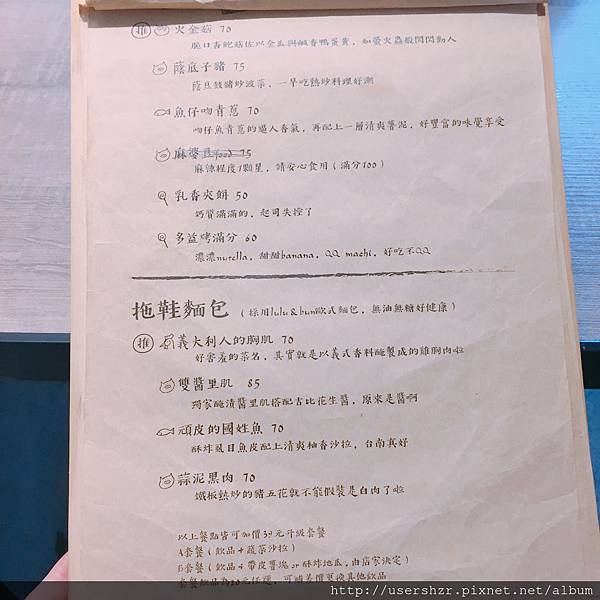 推 火金菇 70
脆口杏鮑菇佐以金瓜與鹹香鴨蛋黃，如螢火蟲般閃閃動人
蔭底子豬 75
蔭豆鼓豬炒波菜，一早吃熱炒料理好潮
魚仔吻青蔥 70
吻仔魚青蔥的逼人香氣，再配上一層清爽薯泥，好豐富的味覺享受
麻婆 75
麻辣程度1顆星，請安心食用（滿分100）
乳香夾餅 50
奶質滿滿的，起司失控了
多益烤滿分 60
濃濃nutella，甜甜banana，QQ machi，好吃不QQ
拖鞋麵包（採用lulu&bun歐式麵包，無油無糖好健康）
推 義大利人的胸肌 70
好害羞的菜名，其實就是以義式香料醃製成的雞胸肉啦
雙醬里肌 85
獨家醃漬醬里肌搭配古比花生醬，原來是醬啊
頑皮的國姓魚 70
酥炸虱目魚皮配上清爽柚香沙拉，台南真好
蒜泥黑肉 70
鐵板熱炒的豬五花就不能假裝是白肉了啦
以上餐點皆可加價39元升級套餐
A套餐（飲品+蔬菜沙拉）
B套餐（飲品+帶皮薯塊or酥炸地瓜，由店家決定）
套餐飲品為30元任選，可補差價更換其他飲品
http://usershzr.pixnet.net/album